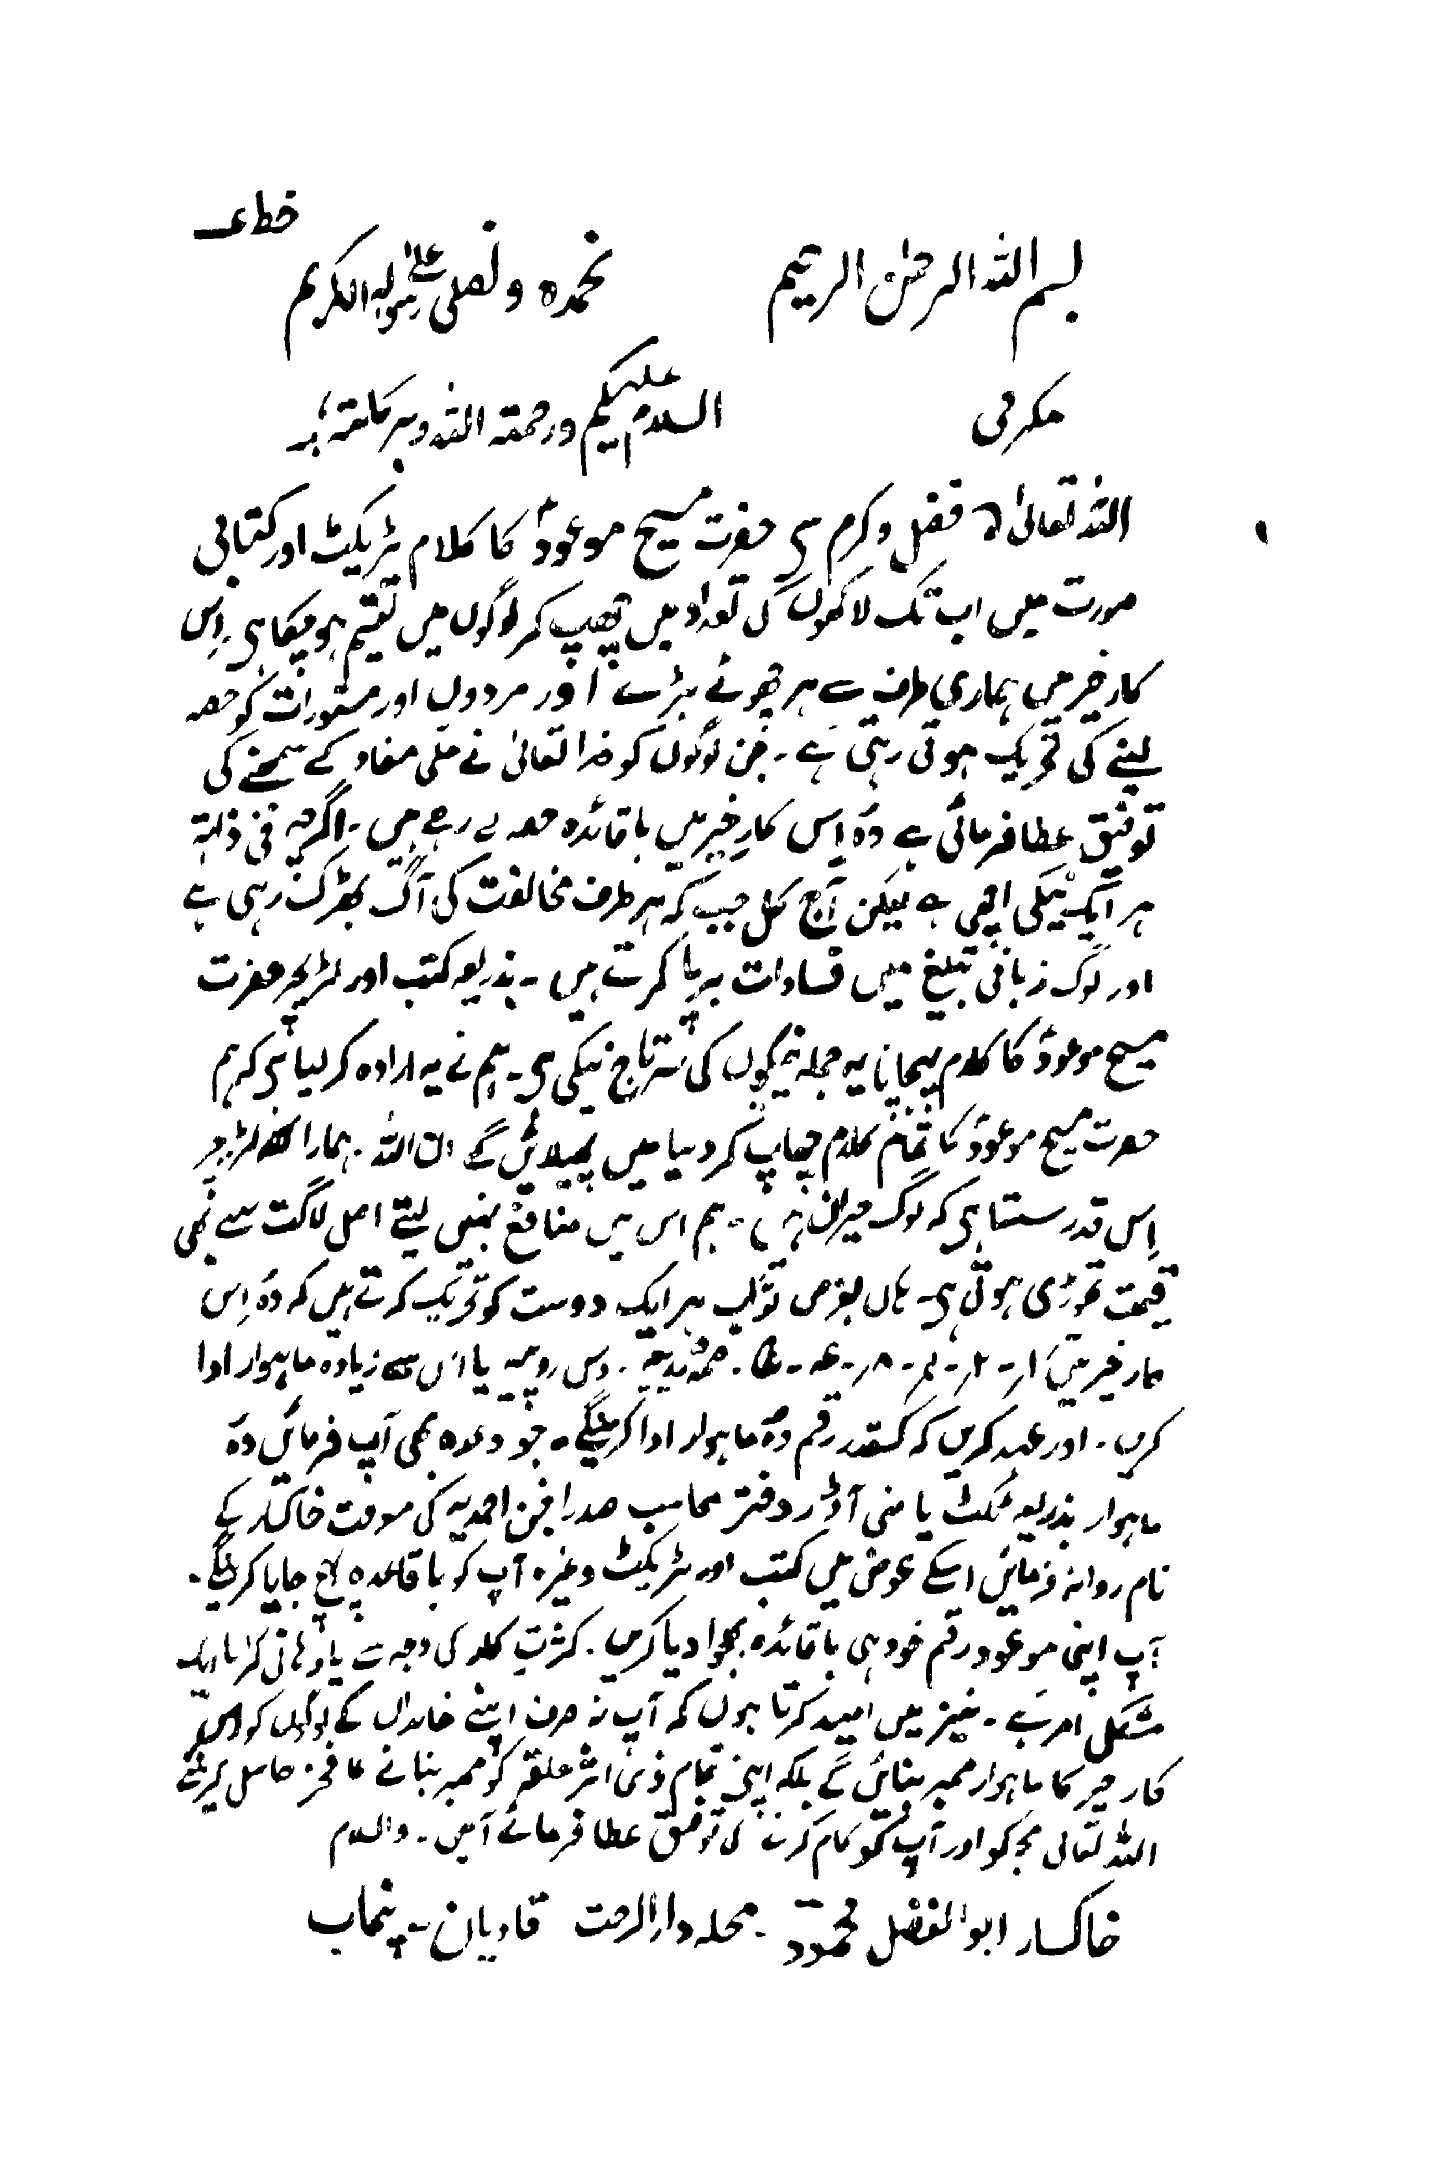 خط ؏
بسم اللہ الرحمٰن الرحیم نحمدہ ونصلی علیٰ رسولہ الکریم
مکرمی السلام علیکم ورحمۃ اللہ وبرکاتہ؛
اللہ تعالیٰ کے فضل وکرم سے حضرت مسیح موعودؑ کا کلام ٹریکٹ اور کتابی
صورت میں اب تک لاکھوں کی تعداد میں چھپ کر لوگوں میں تقسیم ہو چکا ہے۔ اِس
کار خیر میں ہماری طرف سے ہر چھوٹے بڑے اور مردوں اور مستورات کو حصہ
لینے کی تحریک ہوتی رہتی ہے۔ جن لوگوں کو خدا تعالیٰ نے ملّی مفاد کے سمجھنے کی
توفیق عطا فرمائی ہے وہ اِس کارِ خیر میں باقائدہ حصہ لے رہے ہیں۔ اگرچہ فی ذاتہٖ
ہر ایک نیکی اچھی ہے لیکن آج کل جب کہ ہر طرف مخالفت کی آگ بھڑک رہی ہے
اور لوگ زبانی تبلیغ میں فسادات برپا کرتے ہیں۔ بذریعہ کتب اور لٹریچر حضرت
مسیح موعودؑ کا کلام پہنچانا یہ جملہ نیکیوں کی سرتاج نیکی ہے۔ ہم نے یہ ارادہ کر لیا ہے کہ ہم
حضرت مسیح موعودؑ کا تمام کلام چھاپ کر دنیا میں پھیلائیں گے انشاءاللہ۔ ہمارا لٹریچر
اِس قدر سستا ہے کہ لوگ حیران ہیں۔ ہم اس میں منافع نہیں لیتے اصل لاگت سے بھی
قیمت تھوڑی ہوتی ہے۔ ہاں بغرض ثواب ہر ایک دوست کو تحریک کرتے ہیں کہ وہ اِس
کار خیر میں ۱؍ - ۲؍ - ۴؍ - ۸؍ - دس روپیہ یا اس سے زیادہ ماہوار ادا
کریں۔ اور عہد کریں کہ کسقدر رقم وہ ماہوار ادا کرینگے۔ جو وعدہ بھی آپ فرمائیں وہ
ماہوار بذریعہ ٹکٹ یا منی آڈر دفتر محاسب صدر انجمن احمدیہ کی معرفت خاکسار کے
نام روانہ فرمائیں اسکے عوض میں کتب اور ٹریکٹ وغیرہ آپ کو باقاعدہ پہنچ جایا کرینگے۔
آپ اپنی موعود رقم خود ہی باقائدہ بھجوا دیا کریں۔ کثرتِ کار کی وجہ سے یاد دہانی کرانا ایک
مشکل امر ہے۔ نیز میں امید کرتا ہوں کہ آپ نہ صرف اپنے خاندان کے لوگوں کو اس
کار خیر کا ماہوار ممبر بنائیں گے بلکہ اپنی تمام ذی اثر حلقہ کو ممبر بنانے کا فخر حاصل کرینگے
اللہ تعالیٰ مجھکو اور آپ کو کام کرنے کی توفیق عطا فرمائے آمین۔ والسلام
خاکسار ابوالفضل محمود۔ محلہ دارالرحمت قادیان۔ پنجاب